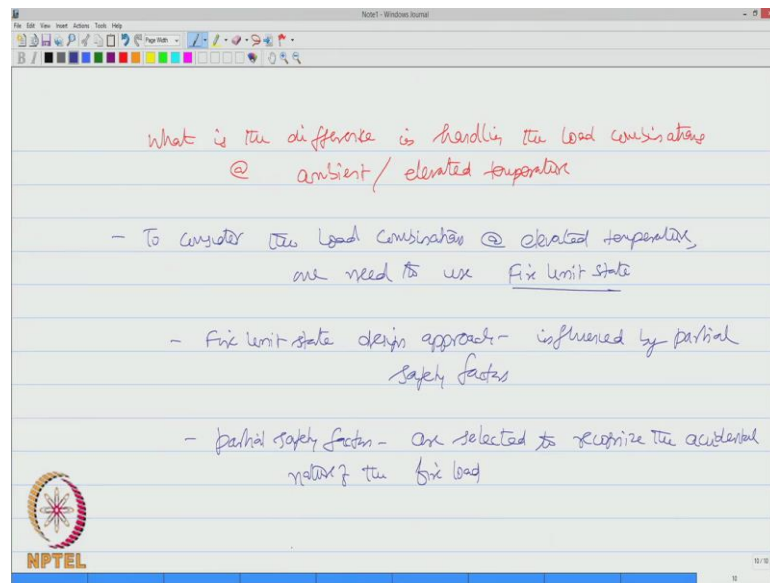 Note1 - Windows Journal
File Edit View Insert Actions Tools Help
Page Width
B I
What is the difference is handling the load combinations
@ ambient/elevated temperature
- To consider the load combinations @ elevated temperature,
one need to use Fire limit state
- Fire limit state design approach - influenced by partial
safety factors
- partial safety factors - are selected to recognize the accidental
nature of the fire load
NPTEL
10/10
10